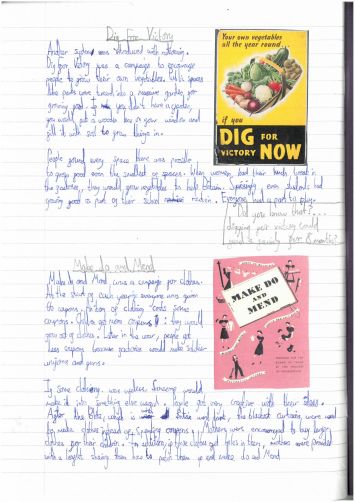 Dig For Victory
Another system was introduced with rationing.
Dig For Victory was a campaign to encourage
people to grow their own vegetables. Public spaces
like parks were turned into a massive garden for
growing food. If you didn't have a garden,
you would put a wooden box on your window and
fill it with soil to grow things in.
Your own vegetables
all the year round...
if you
DIG FOR
VICTORY NOW
People ground every space there was possible
to grow food even the smallest of spaces. When women had their hands,
the factories, they would grow vegetables to help Britain. Surprisingly even students had
growing food as part of their school routine. Everyone had a part to play.
Did you know that...
digging for victory could
Make do and Mend
Make do and Mend was a campaign for clothes.
At the start of each year, everyone was given
coupons. Pieces of clothing costs some
coupons. Children got more coupons they would
grow out of clothes. Later in the war, people got
less coupons because factories would make soldiers
uniforms and guns.
MAKE DO
AND
MEND
If some clothing was useless, housewives would
make it into something else useful. People got very creative with their ideas.
After the Blitz, the blackout curtains were used
to make clothes instead of spending coupons. Mothers were encouraged to buy larger
clothes for their children. In addition, if the clothes got holes in them, mothers were provided
with a leaflet showing them how to make do and Mend